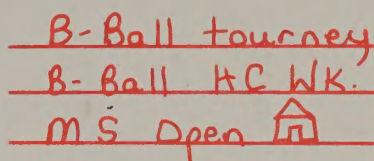 B-Ball tourney
B-Ball HC WK.
MS Open